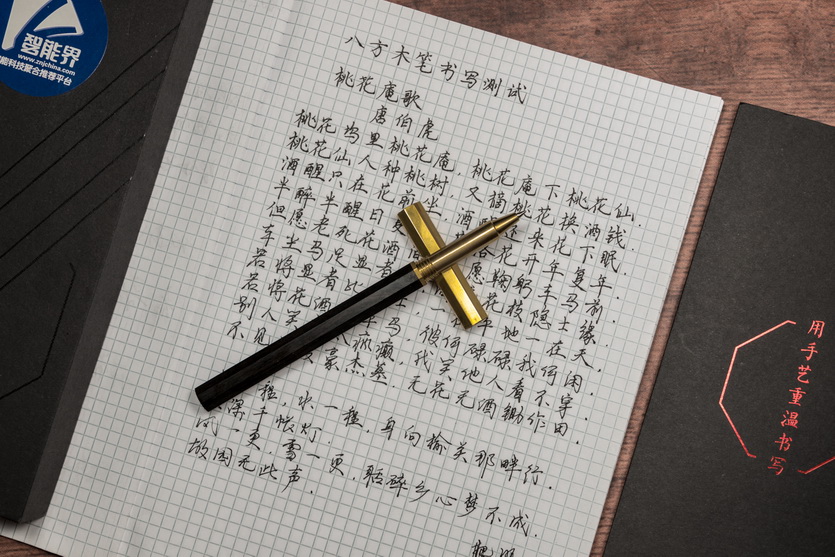 智能界
www.znjchina.com
科技聚合推荐平台
八方木笔书写测试
桃花庵歌
唐伯虎
桃花坞里桃花庵,桃花庵下桃花仙.
桃花仙人种桃树,又摘桃花换酒钱.
酒醒只在花前坐,酒还来花下眠.
半醉半醒日复花开年复年.
但愿老死花酒间愿鞠躬车马前.
车尘马足显者花枝隐士缘.
若将显者比士,一平地一在天.
若将花酒车马,彼何碌碌我何闲.
别人笑疯癫,我笑他人看不穿.
不见豪杰墓,无花无酒锄作田.
程,水一程,身向榆关那畔行.
深千帐灯.
风一更,雪一更,聒碎乡心梦不成.
故园无此声.
用手艺重温书写